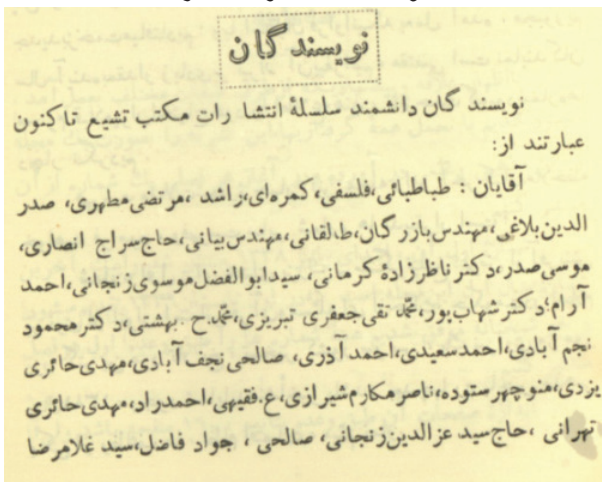 نویسندگان
نویسندگان دانشمند سلسلهٔ انتشارات مکتب تشیع تاکنون
عبارتند از:
آقایان : طباطبائی،فلسفی،کمره‌ای،راشد ،مرتضی‌مطهری، صدر
الدین‌بلاغی،مهندس‌بازرگان،طالقانی،مهندس‌بیانی،حاج‌سراج انصاری،
موسی‌صدر،دکتر ناظرزادهٔ کرمانی، سیدابوالفضل‌موسوی‌زنجانی، احمد
آرام،دکتر شهاب‌پور،محمد تقی‌جعفری تبریزی،محمدح بهشتی،دکتر محمود
نجم آبادی،احمدسعیدی،احمد آذری، صالحی نجف آبادی،مهدی‌حائری
یزدی،منوچهرستوده،ناصرمکارم‌شیرازی،ع.فقیهی،احمدراد،مهدی‌حائری
تهرانی ،حاج‌سید عزالدین‌زنجانی، صالحی ، جواد فاضل،سید غلامرضا